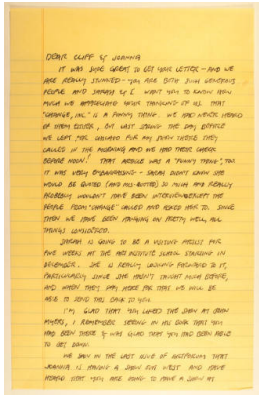 DEAR CLIFF & JOANNA
IT WAS SURE GREAT TO GET YOUR LETTER - AND WE
ARE REALLY STUNNED - YOU ARE BOTH SUCH GENEROUS
PEOPLE AND SARAH & I WANT YOU TO KNOW HOW
MUCH WE APPRECIATE YOUR THINKING OF US. THAT
"CHANGE, INC." IS A FUNNY THING. WE HAD NEVER HEARD
OF THEM EITHER, BUT LAST SPRING THE DAY BEFORE
WE LEFT FOR CHICAGO FOR MY SHOW THERE THEY
CALLED IN THE MORNING AND WE HAD THEIR CHECK
BEFORE NOON! THAT ARTICLE WAS A "FUNNY THING", TOO
IT WAS VERY EMBARRASSING - SARAH DIDN'T KNOW SHE
WOULD BE QUOTED (AND MIS-QUOTED) SO MUCH AND REALLY
PROBABLY WOULDN'T HAVE BEEN INTERVIEWED EXCEPT THE
PEOPLE FROM "CHANGE" CALLED AND ASKED HER TO. SINCE
THEN WE HAVE BEEN HANGING ON PRETTY WELL, ALL
THINGS CONSIDERED.
SARAH IS GOING TO BE A VISITING ARTIST FOR
FIVE WEEKS AT THE ART INSTITUTE SCHOOL STARTING IN
DECEMBER. SHE IS REALLY LOOKING FORWARD TO IT,
PARTICULARLY SINCE SHE HASN'T TAUGHT MUCH BEFORE,
AND WHEN THEY PAY HER FOR THAT WE WILL BE
ABLE TO SEND THIS BACK TO YOU.
I'M GLAD THAT YOU LIKED THE SHOW AT JOHN
MYERS, I REMEMBER SEEING IN HIS BOOK THAT YOU
HAD BEEN THERE & WAS GLAD THAT YOU HAD BEEN ABLE
TO GET DOWN.
WE SAW IN THE LAST ISSUE OF ARTFORUM THAT
JOANNA IS HAVING A SHOW OUT WEST AND HAVE
HEARD THAT YOU ARE GOING TO HAVE A SHOW AT